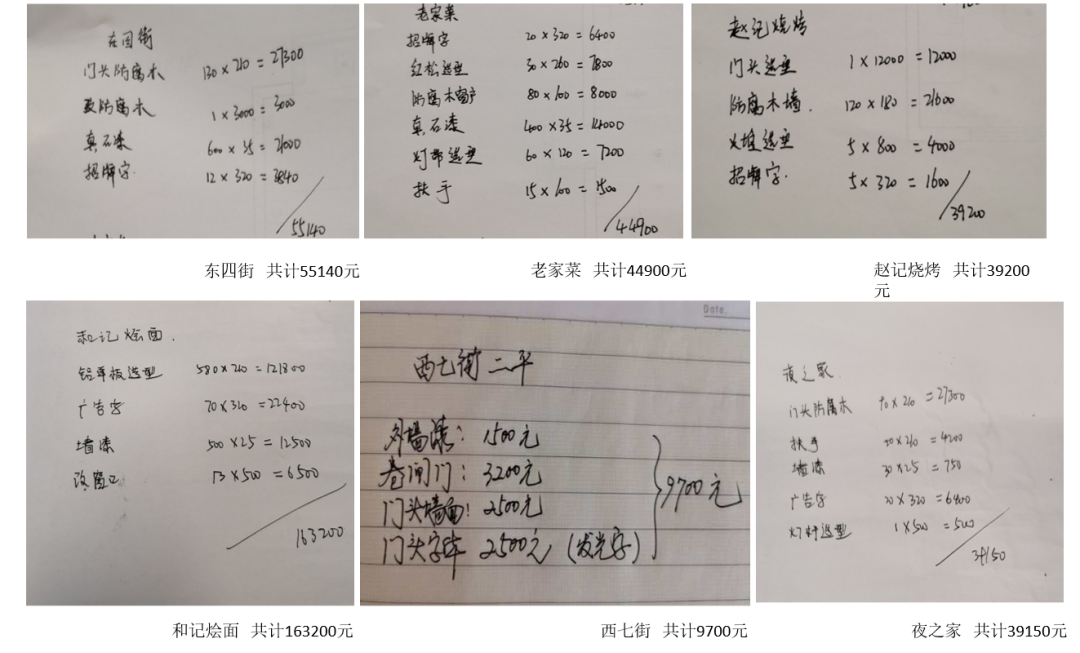 东四街
门头防腐木 130×210=27300
改防腐木 1×3000=3000
真石漆 600×35=21000
招牌字 12×320=3840
55140
东四街 共计55140元
老家菜
招牌字 20×320=6400
红松造型 30×260=7800
防腐木窗户 80×100=8000
真石漆 400×35=14000
灯带造型 60×120=7200
扶手 15×100=1500
44900
老家菜 共计44900元
赵记烧烤
门头造型 1×12000=12000
防腐木墙 120×180=21600
火堆造型 5×800=4000
招牌字 5×320=1600
39200
赵记烧烤 共计39200
元
和记烩面
铝单板造型 580×210=121800
广告字 70×320=22400
墙漆 500×25=12500
改窗口 13×500=6500
163200
和记烩面 共计163200元
Date.
西七街二平
外墙漆:1500元
卷闸门:3200元
门头墙面:2500元
门头字体 2500元(发光字)
9700元
西七街 共计9700元
夜之家
门头防腐木 ×210=27300
扶手 ×210=4200
墙漆 30×25=750
广告字 20×320=6400
灯杆造型 1×500=500
39150
夜之家 共计39150元